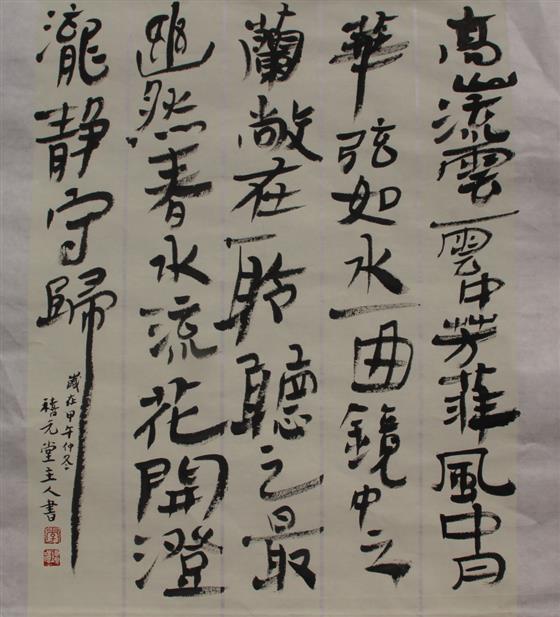 高山流雲雲中芳菲風中月
華弦如水一曲鏡中之
蘭敞在聆聽之最
幽然春水流花開澄
瀧靜守歸
歲在甲午仲冬
禧元堂主人書